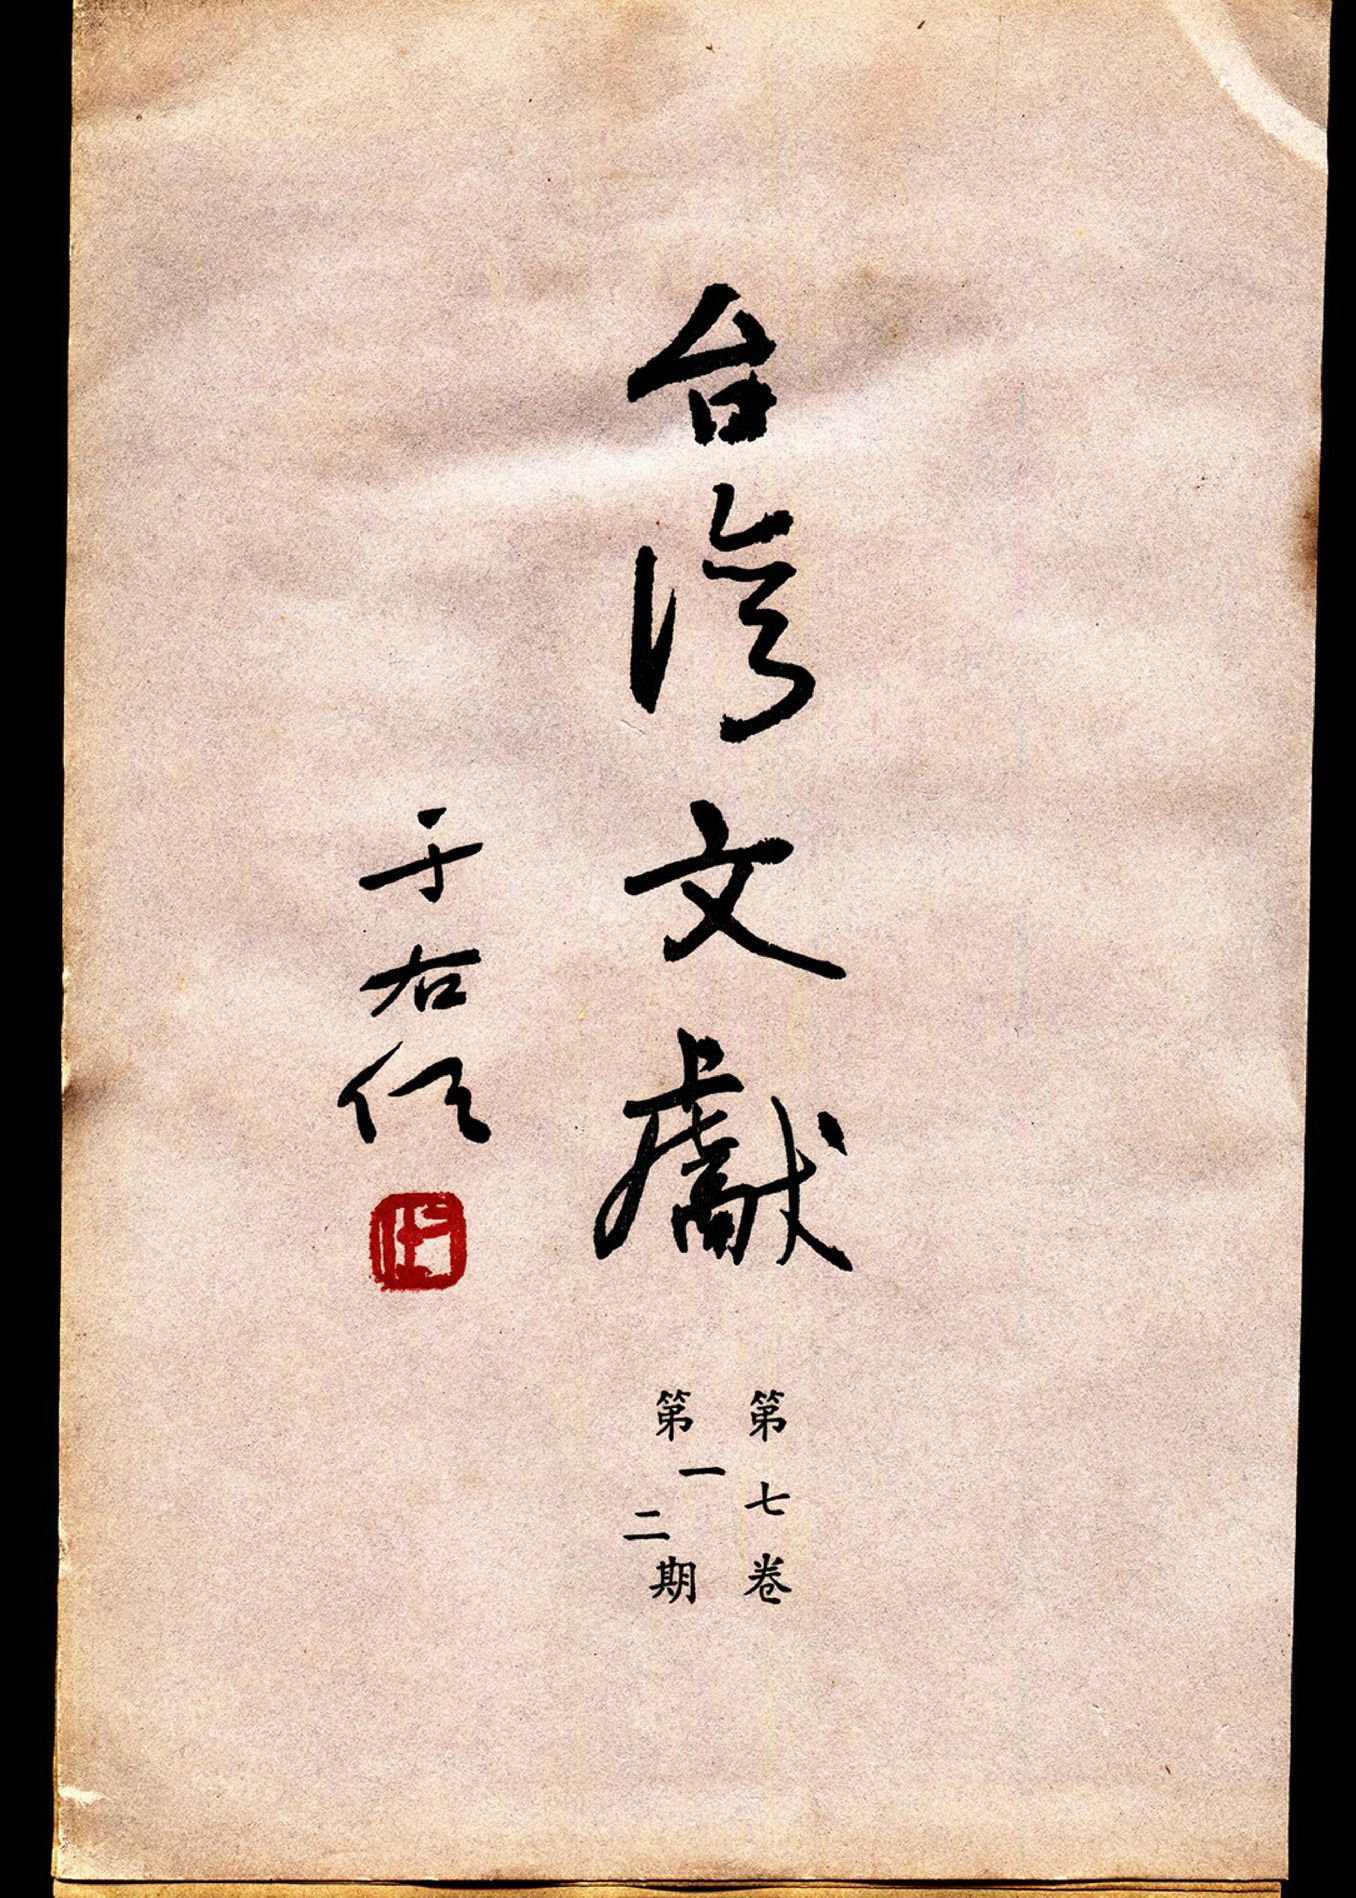 台湾文獻
第七卷
第一二期
于右任